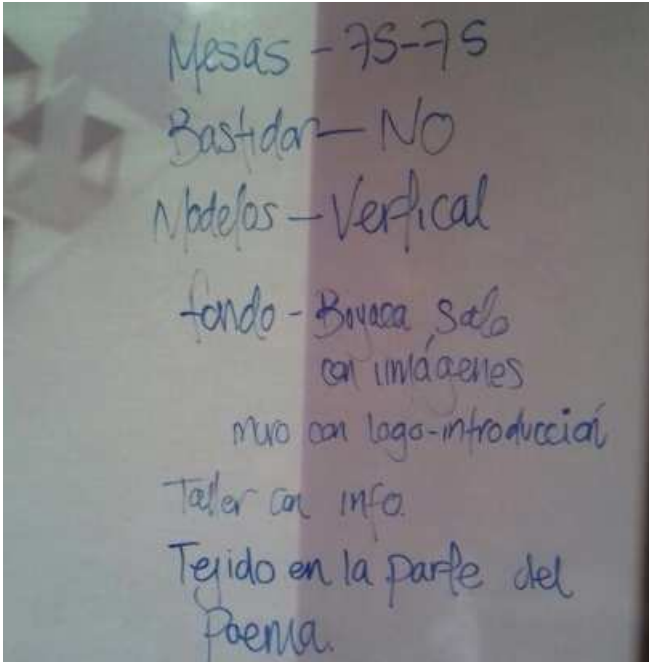 Mesas - 75-75
Bastidor - NO
Modelos - Vertical
fondo - Boyaca solo
con imágenes
muro con logo-introducción
Taller con info.
Tejido en la parte del
Poema.